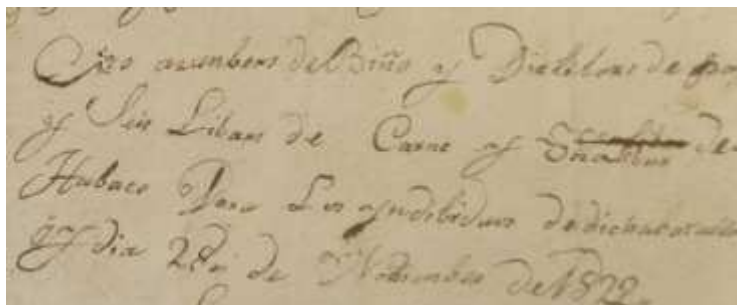 azunbres de Biño y Diez libras de pa
y Seis Libars de Carne y de
Habaco Para Los yndibiduos de dicha
oy dia 28 de Nobienbre de 1822